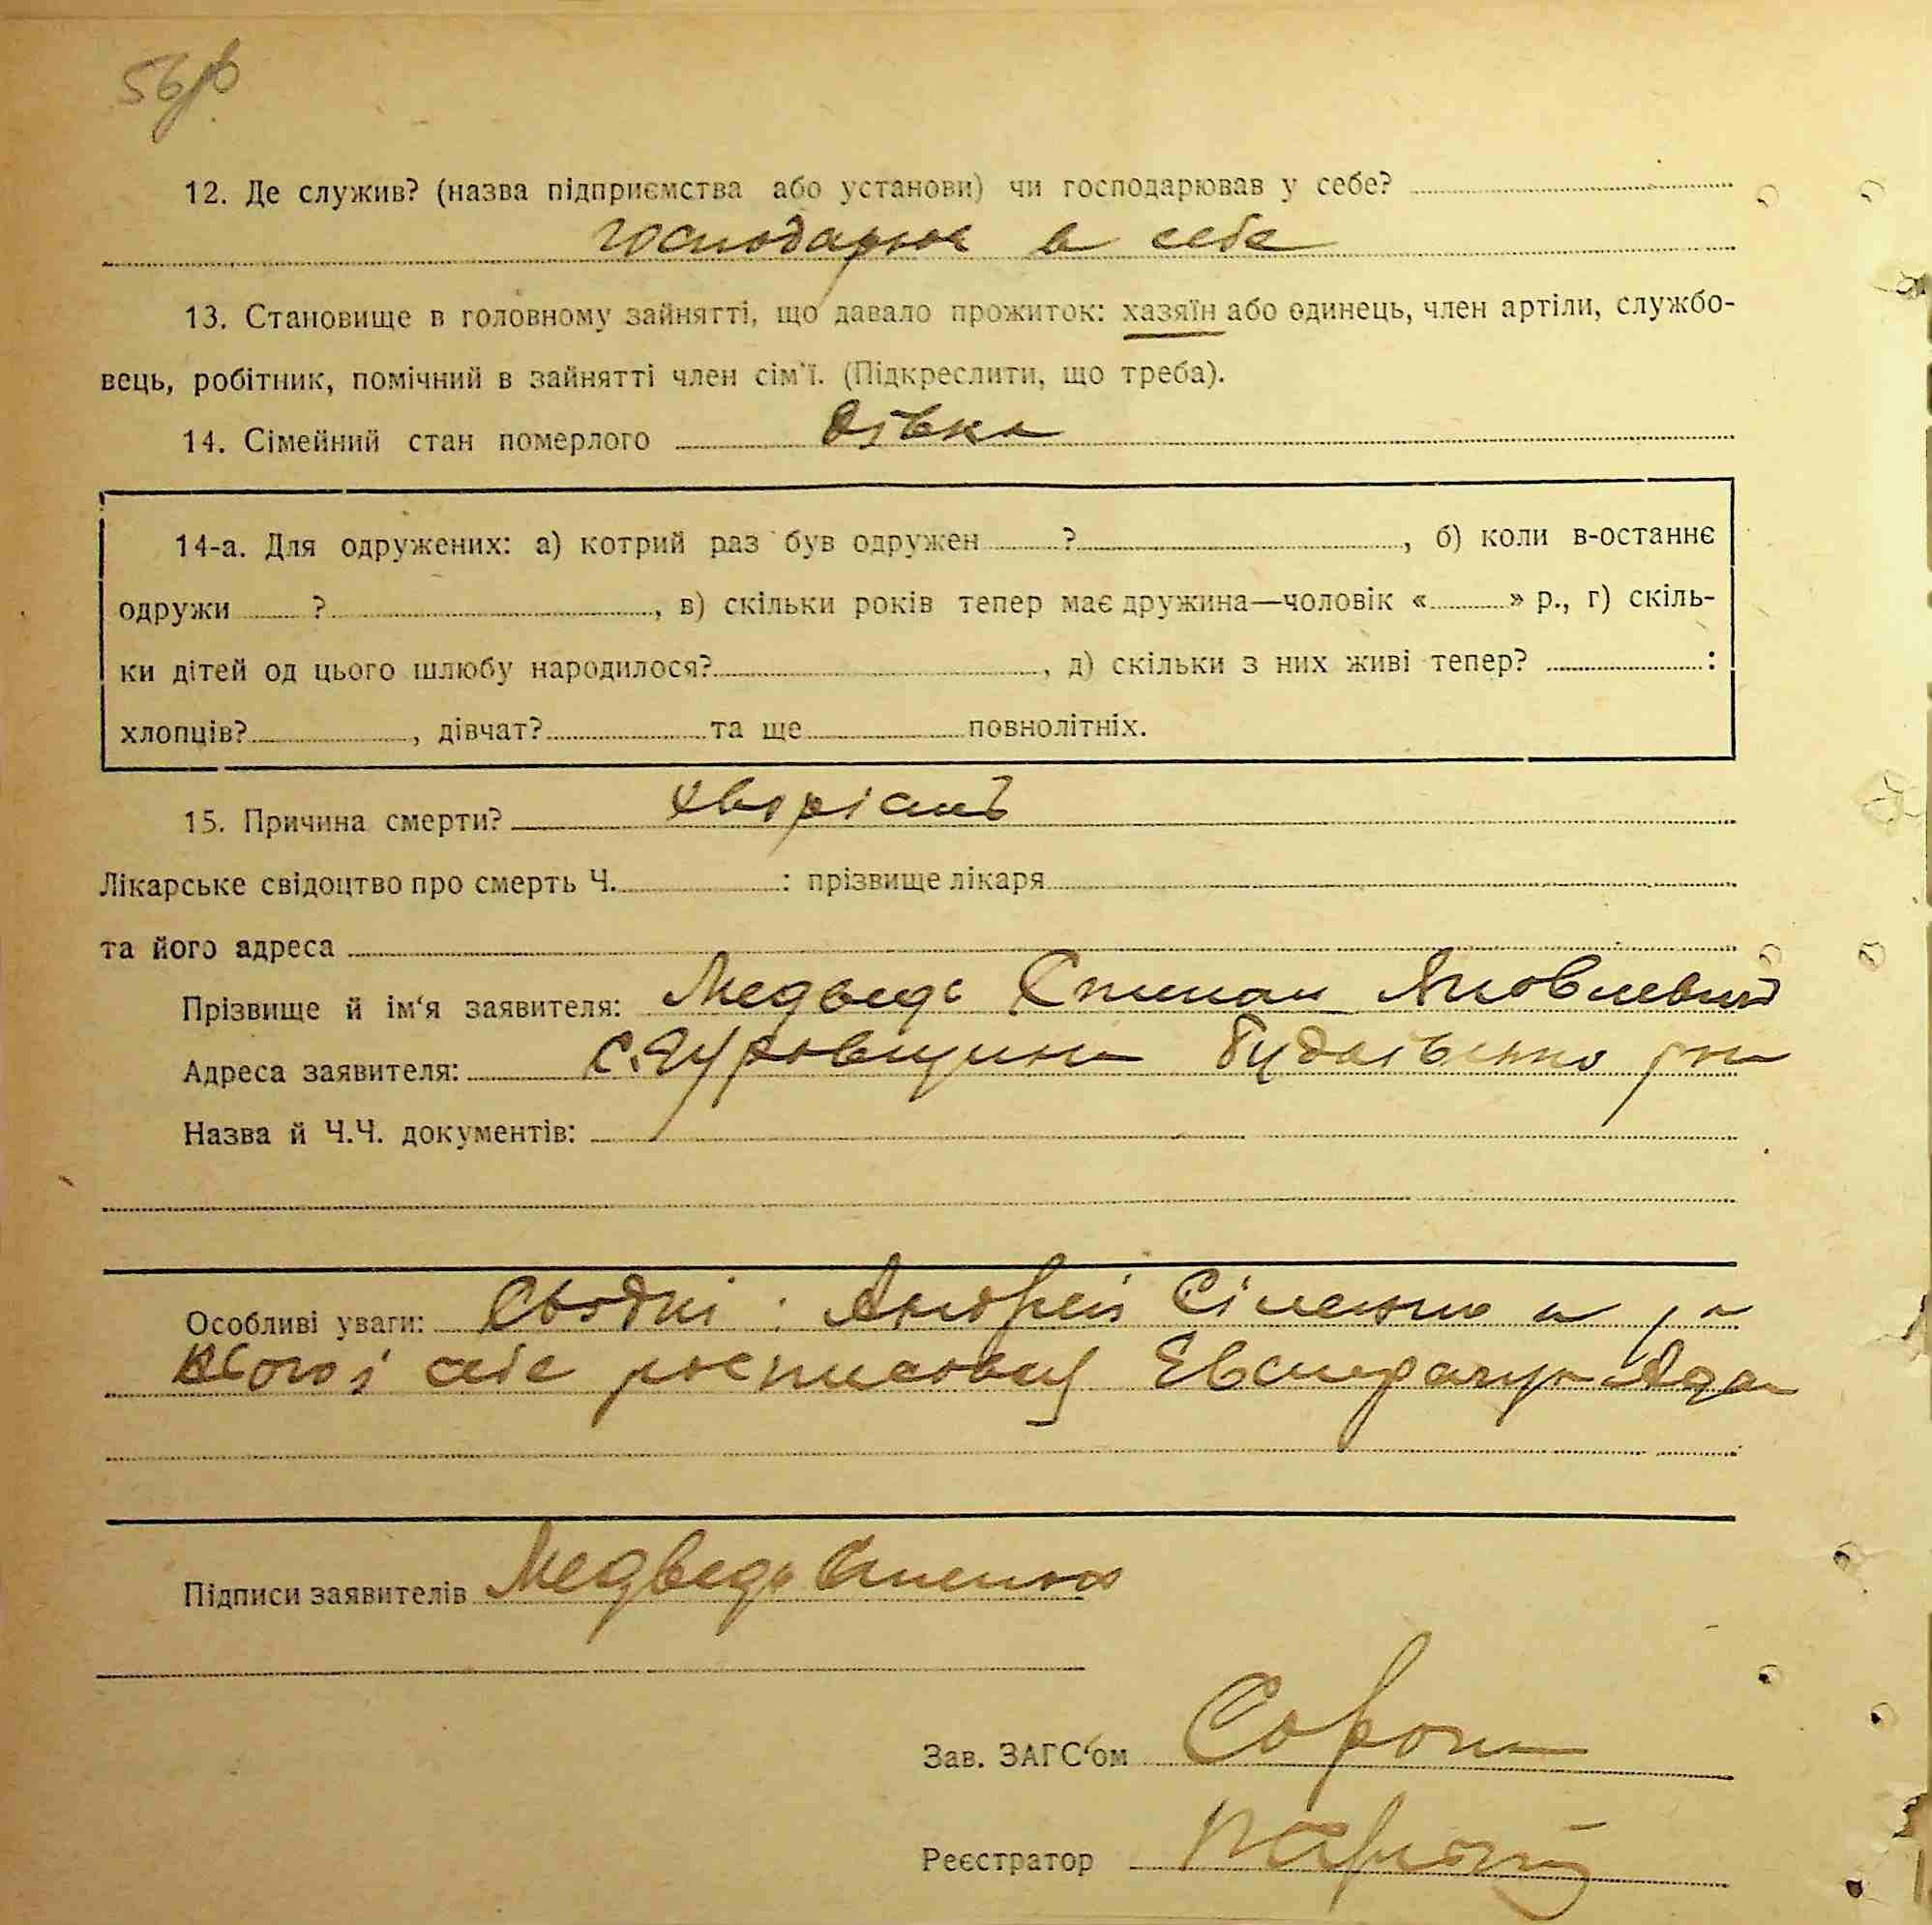 12. Де служив? (назва підприємства або установи) чи господарював у себе?
господарює в себе
13. Становище в головному зайнятті, що давало прожиток: хазяїн або одинець, член артіли, службо-
вець, робітник, помічний в зайнятті член сім'ї. (Підкреслити, що треба).
14. Сімейний стан померлого дівка
14-а. Для одружених: а) котрий раз був одружен ?, б) коли в-останнє
одружи ?, в) скільки років тепер має дружина—чоловік « » р., г) скіль-
ки дітей од цього шлюбу народилося?, д) скільки з них живі тепер? :
хлопців?, дівчат? та ще повнолітніх.
15. Причина смерти?
Лікарське свідоцтво про смерть Ч. : прізвище лікаря
та його адреса
Прізвище й ім'я заявителя: Медведь Степан Яковлевич
Адреса заявителя:
Назва й Ч.Ч. документів:
Особливі уваги: Свідкі : Андрей
Підписи заявителів Медведь
Зав. ЗАГС'ом
Реєстратор